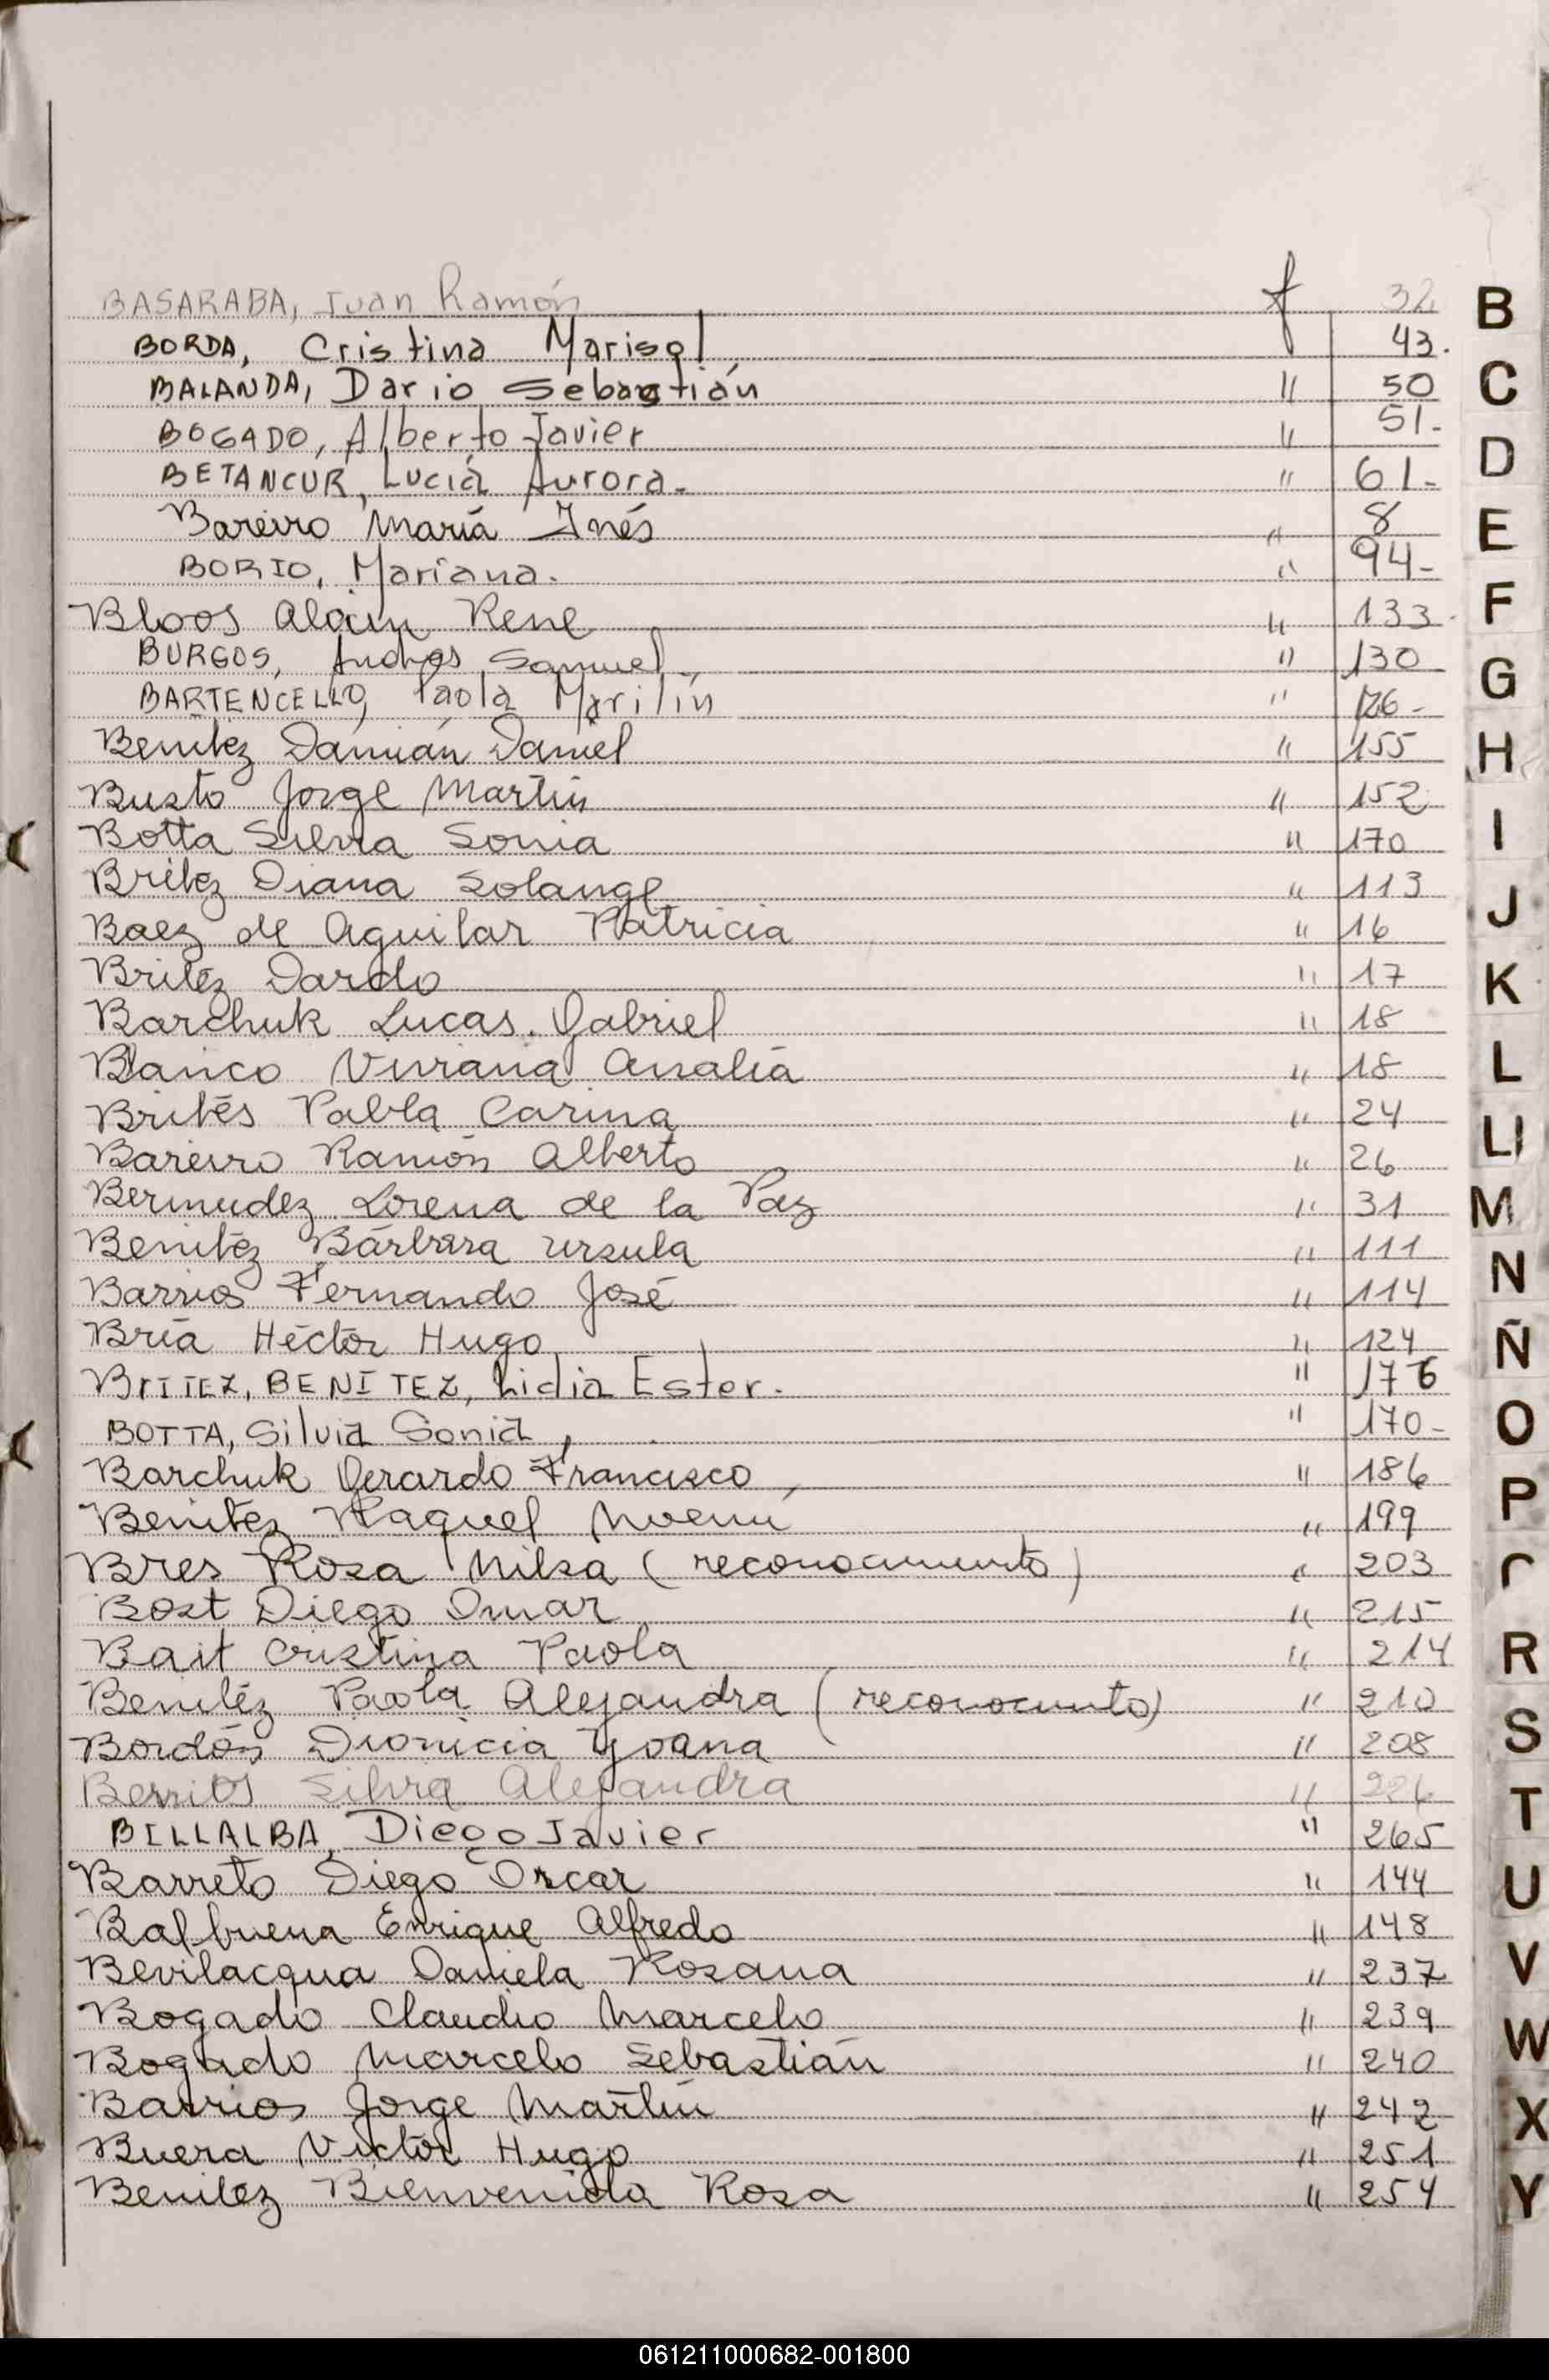 BASARABA, Juan Ramón f 32
BORDA, Cristina Marisol 43.
BALANDA, Dario Sebastián " 50
BOGADO, Alberto Javier " 51-
BETANCUR, Lucía Aurora. " 61-
Bareiro María Inés " 8
BORIO, Mariana. " 94-
Bloos Alain Rene " 133-
BURGOS, Andres Samuel " 130
BARTENCELLO, Paola Marilín " 126-
Benitez Damián Daniel " 155
Busto Jorge Martín " 152
Botta Silvia Sonia " 170
Britez Diana Solange " 113
Baez de Aguilar Patricia " 16
Britez Dardo " 17
Barchuk Lucas. Gabriel " 18
Blanco Viviana Analía " 18
Brites Pabla Carina " 24
Bareiro Ramón Alberto " 26
Bermudez Lorena de la Paz " 31
Benitez Bárbara Ursula " 111
Barrios Fernando José " 114
Bría Héctor Hugo " 124
BrITEZ, BENITEZ, Lidia Ester. " 176
BOTTA, Silvia Sonia " 170-
Barchuk Gerardo Francisco " 186
Benitez Raquel Noemí " 199
Bres Rosa Nilsa (reconocimiento) " 203
Bost Diego Omar " 215
Bait Cristina Paola " 214
Benitez Paola Alejandra (reconocimto) " 210
Bordón Dionicia Yoana " 208
Berrios Silvia Alejandra " 226
BILLALBA, Diego Javier " 265
Barreto Diego Oscar " 144
Balbuena Enrique Alfredo " 148
Bevilacqua Daniela Rosana " 237
Bogado Claudio Marcelo " 239
Bogado Marcelo Sebastián " 240
Barrios Jorge Martín " 242
Buera Victor Hugo " 251
Benitez Bienvenida Rosa " 254
B
C
D
E
F
G
H
I
J
K
L
Ll
M
N
Ñ
O
P
R
S
T
U
V
W
X
Y
061211000682-001800